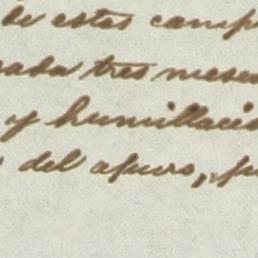 de estas camp
cada tres mese
y humillació
del apuro, pu